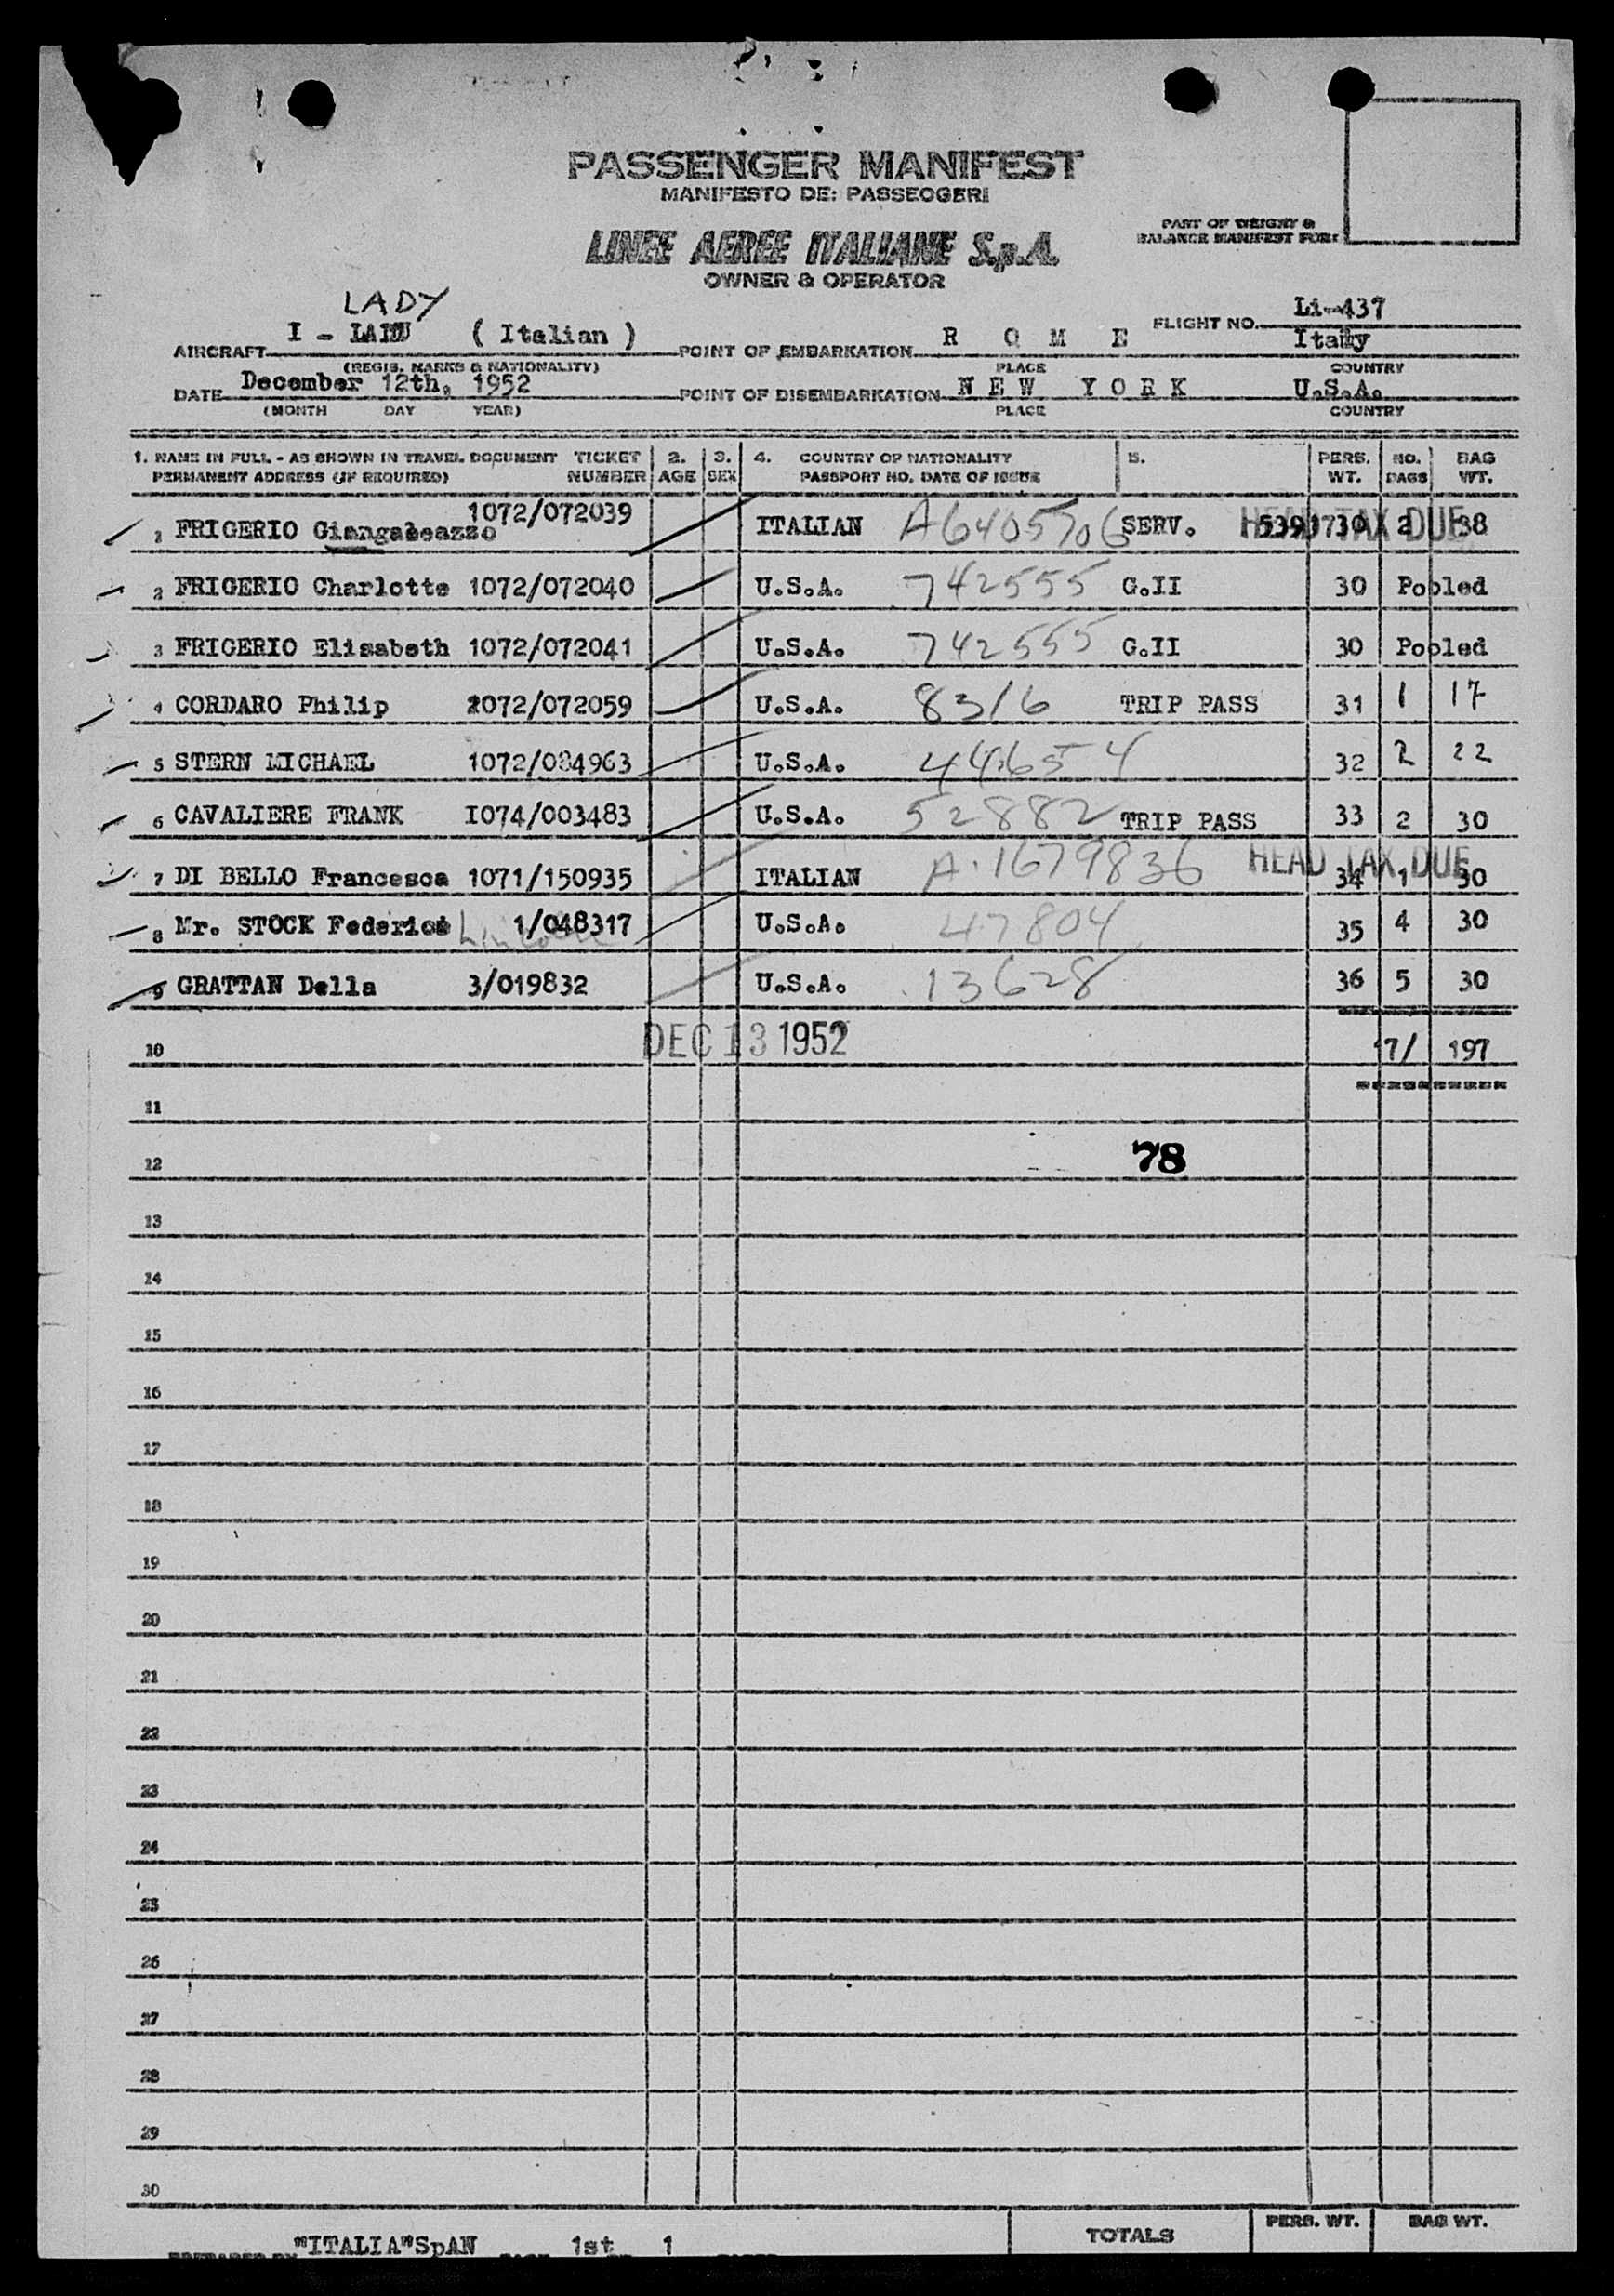 PASSENGER MANIFEST
MANIFESTO DE: PASSEOGERI
LINEE AEREE ITALIANE S.p.A.
OWNER & OPERATOR
PART OF WEIGHT &
BALANCE MANIFEST FOR:
LADY
AIRCRAFT I - ( Italian ) POINT OF EMBARKATION R O M E FLIGHT NO. Li-437
Italy
(REGIS. MARKS & NATIONALITY) PLACE COUNTRY
DATE December 12th, 1952 POINT OF DISEMBARKATION N E W Y O R K U.S.A.
(MONTH DAY YEAR) PLACE COUNTRY
1. NAME IN FULL - AS SHOWN IN TRAVEL DOCUMENT TICKET 2. 3. 4. COUNTRY OF NATIONALITY 5. PERS. NO. BAG
PERMANENT ADDRESS (IF REQUIRED) NUMBER AGE SEX PASSPORT NO. DATE OF ISSUE WT. BAGS WT.
1 FRIGERIO Giangaleazzo 1072/072039 ITALIAN A6405706 SERV. HEAD TAX DUE 30 2 38
2 FRIGERIO Charlotte 1072/072040 U.S.A. 742555 G.II 30 Pooled
3 FRIGERIO Elisabeth 1072/072041 U.S.A. 742555 G.II 30 Pooled
4 CORDARO Philip 1072/072059 U.S.A. 8316 TRIP PASS 31 1 17
5 STERN MICHAEL 1072/084963 U.S.A. 44654 32 2 22
6 CAVALIERE FRANK I074/003483 U.S.A. 52882 TRIP PASS 33 2 30
7 DI BELLO Francesca 1071/150935 ITALIAN A-1679836 HEAD TAX DUE 34 1 30
8 Mr. STOCK Federico Lincoln 1/048317 U.S.A. 47804 35 4 30
9 GRATTAN Della 3/019832 U.S.A. 13628 36 5 30
10 DEC 13 1952 17/ 197
11
12 78
13
14
15
16
17
18
19
20
21
22
23
24
25
26
27
28
29
30
"ITALIA"SpAN 1st 1 TOTALS PERS. WT. BAG WT.